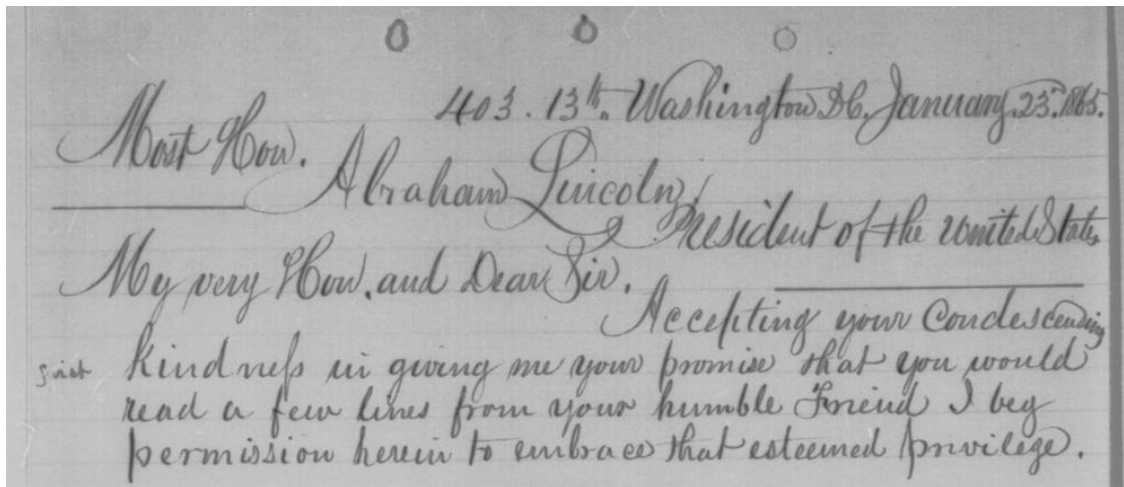 403. 13th. Washington DC. January 23rd. 1865.
Most Hon.
Abraham Lincoln,
President of the United States
My very Hon. and Dear Sir.
Accepting your Condescending
kindness in giving me your promise that you would
read a few lines from your humble Friend I beg
permission herein to embrace that esteemed privilege.